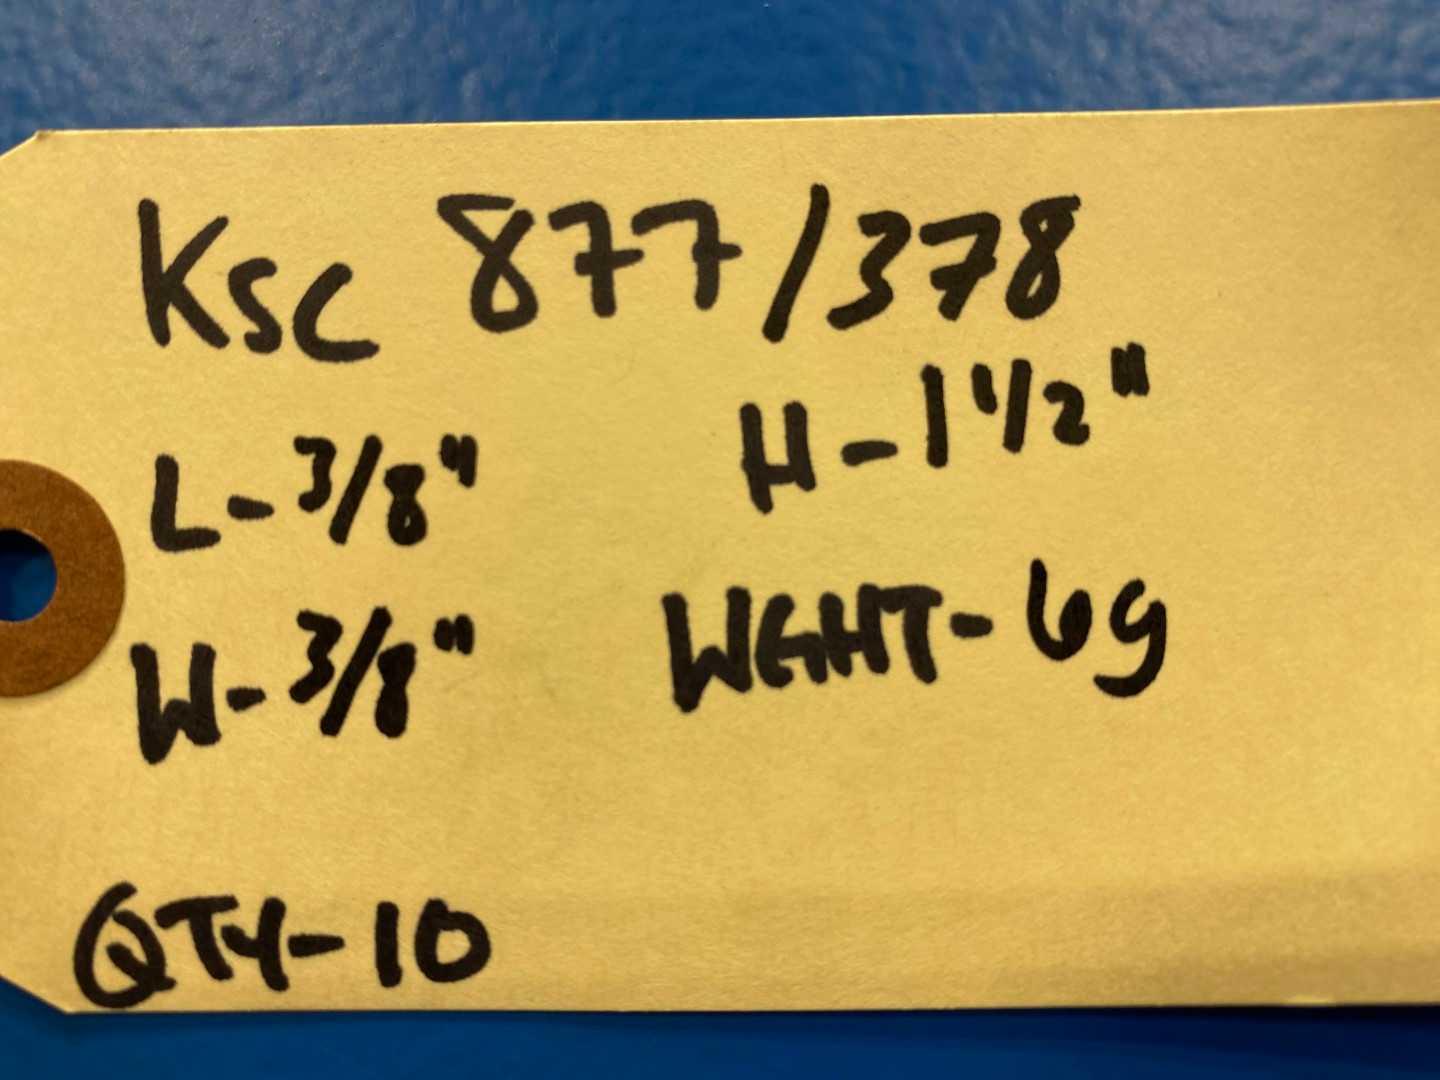 KSC 877/378
L-3/8" H-1 1/2"
W-3/8" WGHT-6g
QTY-10